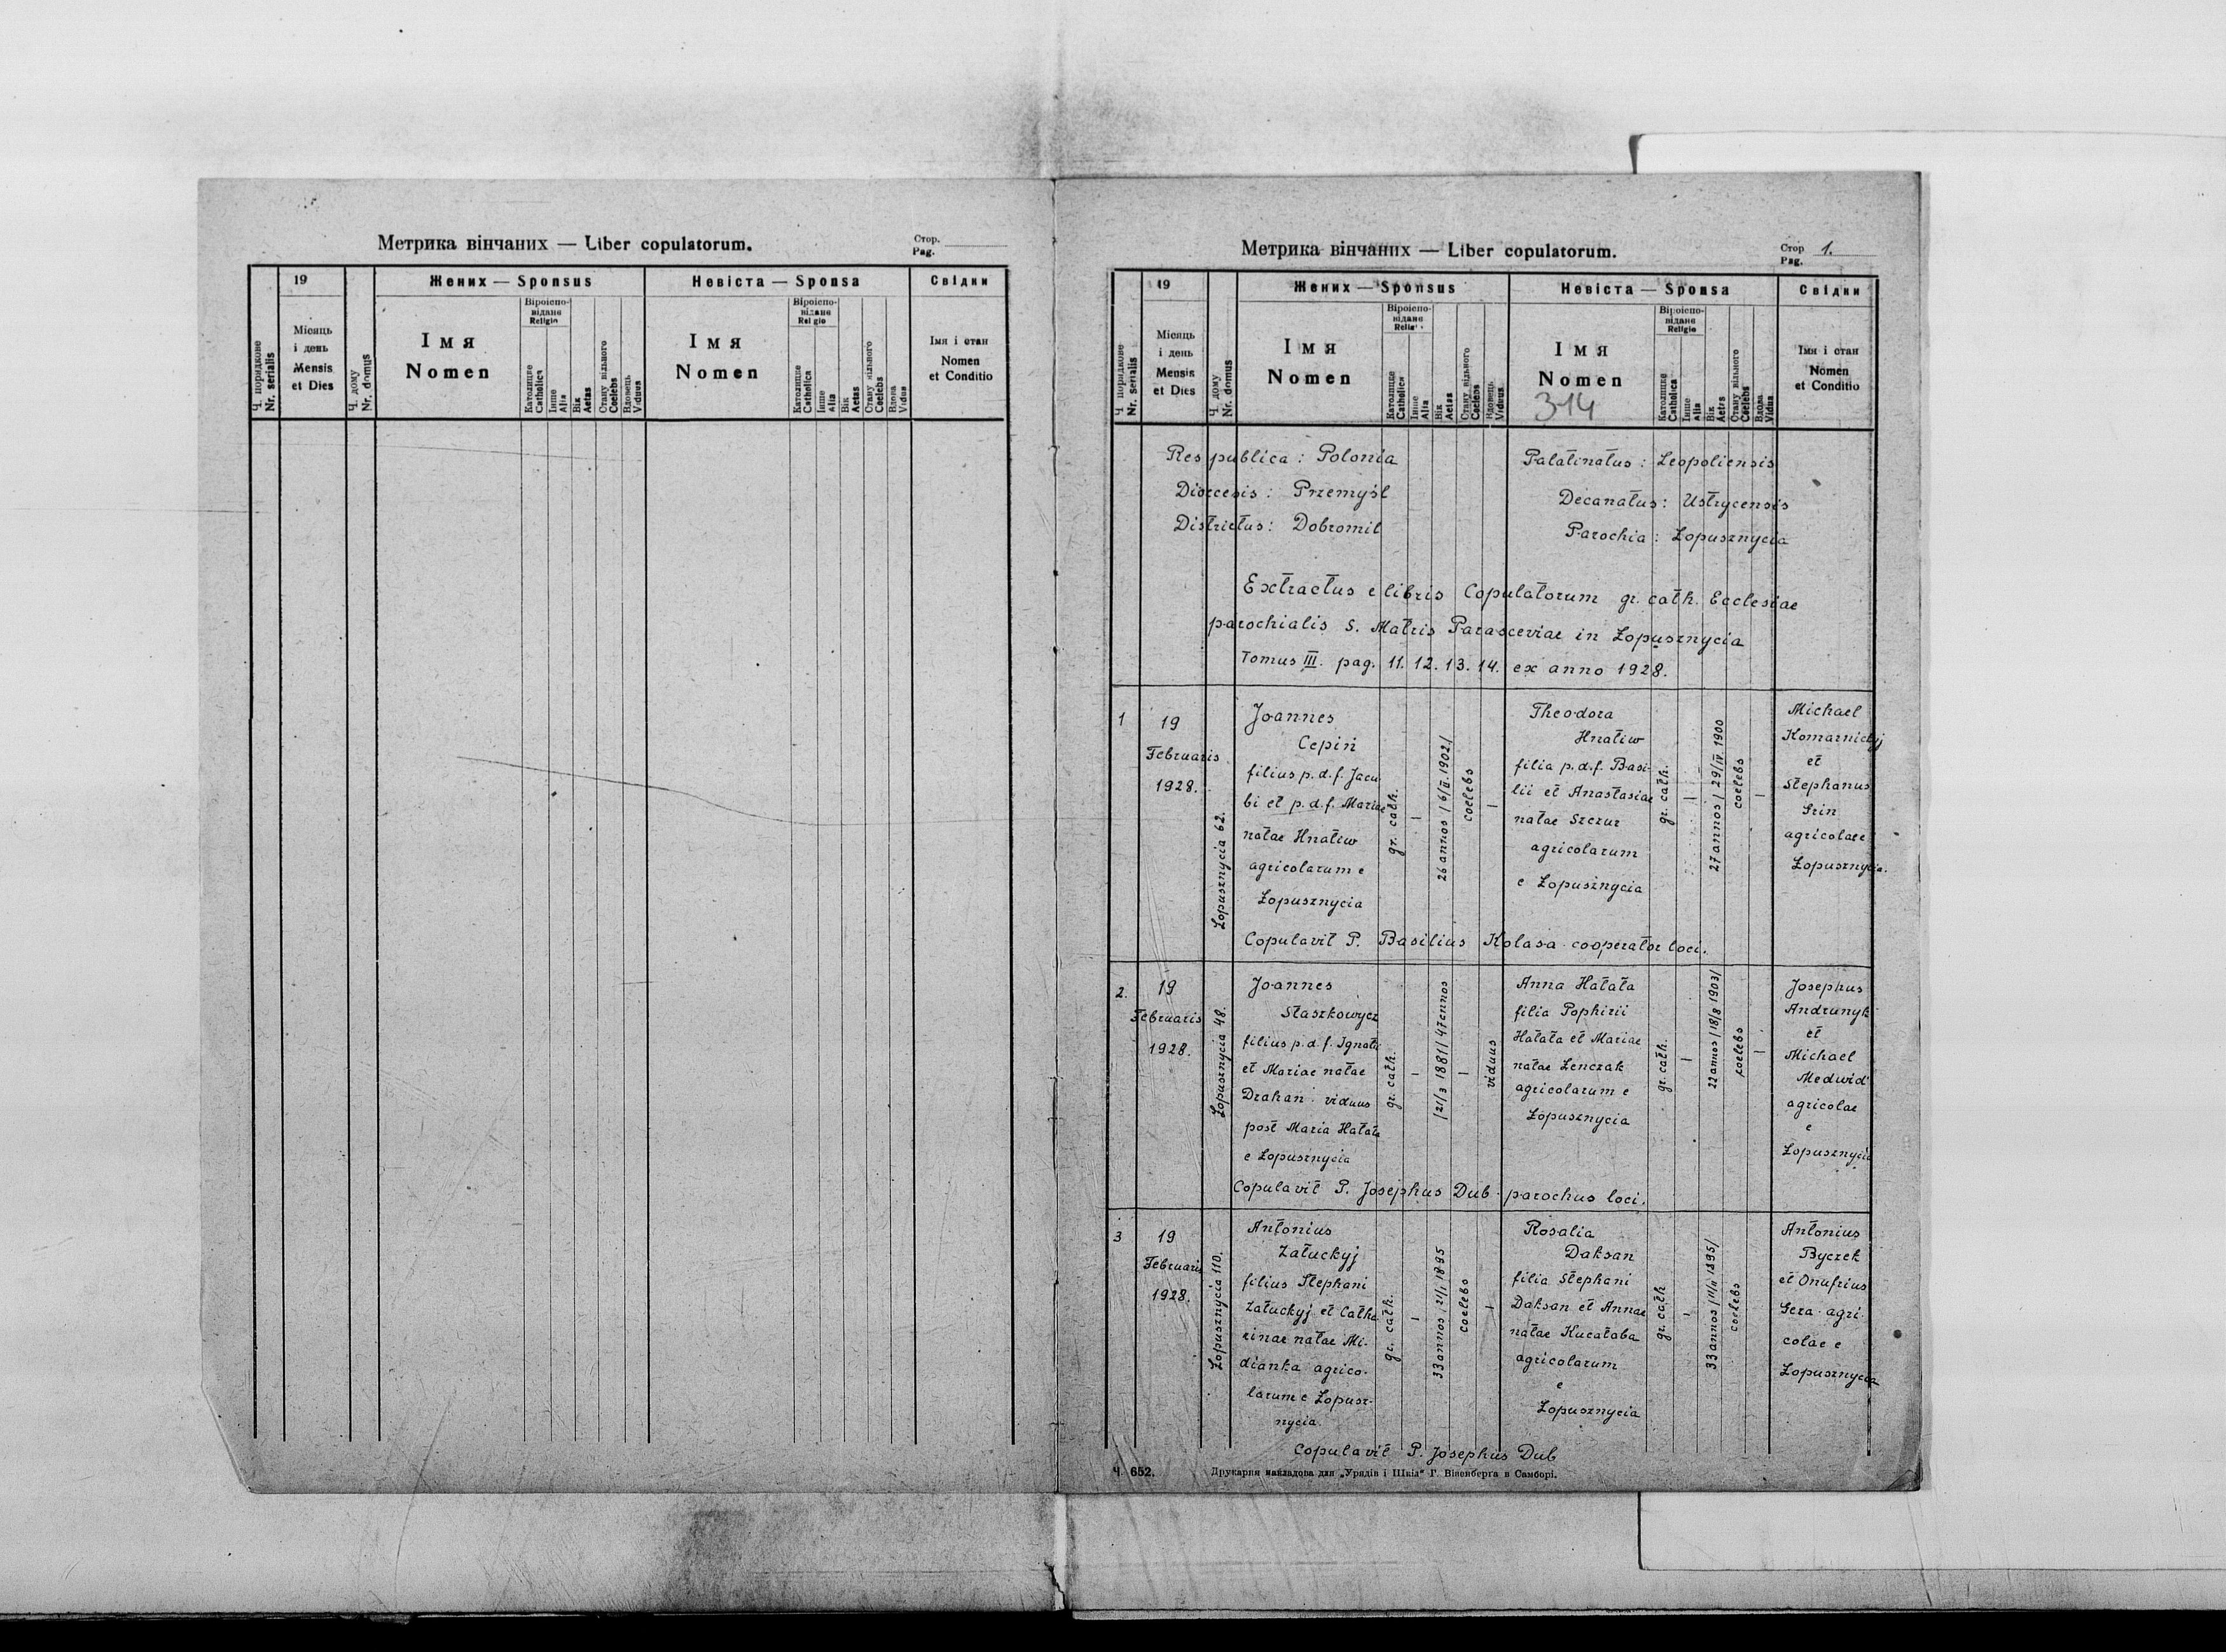 Метрика вінчаних — Liber copulatorum.
Стор.
Pag.
Ч. порядкове
Nr. serialis
19
Місяць
і день
Mensis
et Dies
Ч. дому
Nr. domus
Жених — Sponsus
Імя
Nomen
Віроіспо-
відане
Religio
Католицке
Catholica
Інше
Alia
Вік
Aetas
Стану вільного
Coelebs
Вдовець
Viduus
Невіста — Sponsa
Імя
Nomen
Віроіспо-
відане
Religio
Католицке
Catholica
Інше
Alia
Вік
Aetas
Стану вільного
Coelebs
Вдова
Vidua
Свідки
Імя і стан
Nomen
et Conditio
Метрика вінчаних — Liber copulatorum.
Стор 1.
Pag.
Ч порядкове
Nr. serialis
19
Місяць
і день
Mensis
et Dies
Ч. дому
Nr. domus
Жених — Sponsus
Імя
Nomen
Віроіспо-
відане
Католицке
Catholica
Інше
Alia
Вік
Aetas
Стану вільного
Coelebs
Вдовець
Viduus
Невіста — Sponsa
Імя
Nomen
314
Віроіспо-
відане
Religio
Католицке
Catholica
Інше
Alia
Вік
Стану вільного
Coelebs
Вдова
Vidua
Свідки
Імя і стан
Nomen
et Conditio
Respublica: Polonia
Palatinatus: Leopoliensis
Dioecesis: Przemyśl
Decanatus: Ustrycensis
Districtus: Dobromil
Parochia: Łopusznycia
Extractus e libris Copulatorum gr. cath. Ecclesiae
parochialis S. Matris Parasceviae in Łopusznycia
Tomus III. pag. 11. 12. 13. 14. ex anno 1928.
1
19
Februaris
1928.
Łopusznycia 62.
Joannes
Cepiń
filius p.d.f. Jacu
bi et p.d.f. Mariae
natae Hnatiw
agricolarum e
Łopusznycia
gr. cath.
—
26 annos /6/II 1902/
coelebs
—
Theodora
Hnatiw
filia p.d.f. Basi-
lii et Anastasiae
natae Szczur
agricolarum
e Łopusznycia
gr. cath.
—
27 annos / 29/IV 1900
coelebs
—
Michael
Komarnickyj
et
Stephanus
Hrin
agricolae e
Łopusznycia.
Copulavit P. Basilius Kolasa cooperator loci.
2.
19
Februaris
1928.
Łopusznycia 48.
Joannes
Staszkowycz
filius p.d.f. Ignatii
et Mariae natae
Drahan viduus
post Maria Hałata
e Łopusznycia
gr. cath.
—
/21/3 1881/ 47 annos
—
viduus
Anna Hałata
filia Pophirii
Hałata et Mariae
natae Lenczak
agricolarum e
Łopusznycia
gr. cath.
—
22 annos /18/8 1903/
coelebs
—
Josephus
Andrunyk
et
Michael
Medwid'
agricolae
e
Łopusznycia
Copulavit P. Josephus Dub parochus loci.
3
19
Februaris
1928.
Łopusznycia 110.
Antonius
Załuckyj
filius Stephani
Załuckyj et Catha
rinae natae Mi-
dianka agrico-
larum e Łopusz-
nycia.
gr. cath.
—
33 annos 21/1 1895
coelebs
—
Rosalia
Daksan
filia Stephani
Daksan et Annae
natae Kucałaba
agricolarum
e
Łopusznycia
gr. cath
—
33 annos /11/II 1895/
coelebs
Antonius
Byczek
et Onufrius
Gera agri-
colae e
Łopusznycia
Copulavit P. Josephus Dub
Ч. 652.
Друкарня накладова для „Урядів і Шкіл" Г. Візенберга в Самборі.